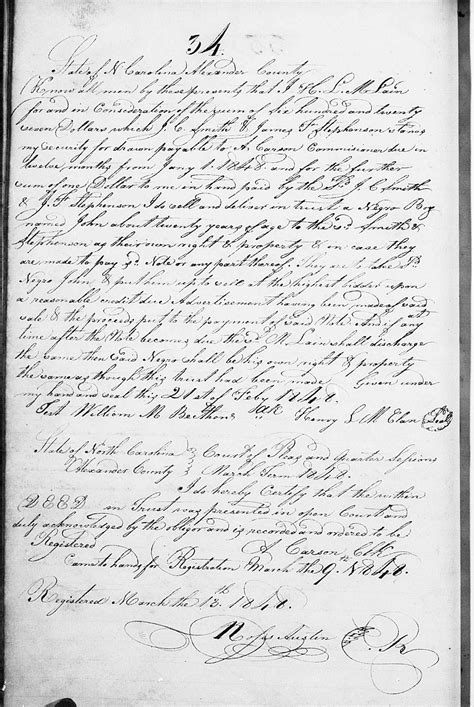 34.
State of N Carolina Alexander County
Know all men by these presents that I H. L. McLain
for and in Consideration of the sum of Six hundred and twenty
seven Dollars which J. C. Smith & James F. Stephenson stands
my security for drawn payable to A. Carson Commissioner due in
twelve months from Jany 1. 1848 and for the further
sum of one Dollar to me in hand paid by the Sd J. C. Smith
& J. F. Stephenson I do sell and deliver in trust a Negro Boy
named John about twenty years of age to the sd Smith &
Stephenson as their own right & property & in case they
are made to pay sd Note or any part thereof They are to take sd
Negro John & put him up to sell at the highest bidder upon
a reasonable credit due Advertisement having been made of said
sale & the proceeds put to the payment of said Note And if at any
time after the Note becomes due the sd McLain shall discharge
the same then said Negro shall be his own right & property
the same as though this trust had been made Given under
my hand and seal this 21st of Feby 1848.
Test William M Henry L McLain Seal
State of North Carolina Court of Pleas and Quarter Sessions
Alexander County March Term 1848.
I do hereby Certify that the within
DEED in Trust was presented in open Court and
duly acknowledged by the obligor and is recorded and ordered to be
Registered A. Carson, Clk
Came to hand for Registration March the 9. 1848.
Registered March the 13th 1848.
Austin